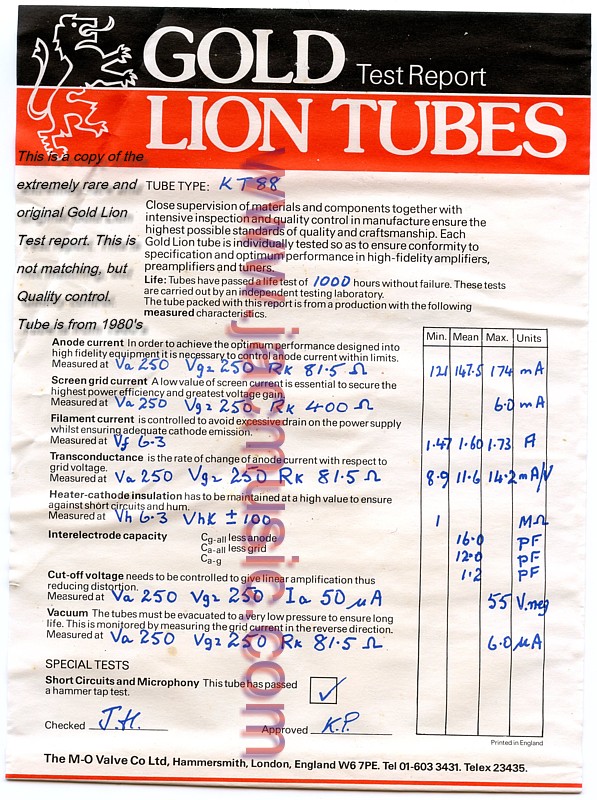 GOLD Test Report
LION TUBES
This is a copy of the
extremely rare and
original Gold Lion
Test report. This is
not matching, but
Quality control.
Tube is from 1980's
TUBE TYPE: KT88
Close supervision of materials and components together with
intensive inspection and quality control in manufacture ensure the
highest possible standards of quality and craftsmanship. Each
Gold Lion tube is individually tested so as to ensure conformity to
specification and optimum performance in high-fidelity amplifiers,
preamplifiers and tuners.
Life: Tubes have passed a life test of 1000 hours without failure. These tests
are carried out by an independent testing laboratory.
The tube packed with this report is from a production with the following
measured characteristics.
Min. Mean Max. Units
Anode current In order to achieve the optimum performance designed into
high fidelity equipment it is necessary to control anode current within limits.
Measured at Va 250 Vg2 250 Rk 81.5 Ω 121 147.5 174 mA
Screen grid current A low value of screen current is essential to secure the
highest power efficiency and greatest voltage gain.
Measured at Va 250 Vg2 250 Rk 400 Ω 6.0 mA
Filament current is controlled to avoid excessive drain on the power supply
whilst ensuring adequate cathode emission.
Measured at Vf 6.3 1.47 1.60 1.73 A
Transconductance is the rate of change of anode current with respect to
grid voltage.
Measured at Va 250 Vg2 250 Rk 81.5 Ω 8.9 11.6 14.2 mA/V
Heater-cathode insulation has to be maintained at a high value to ensure
against short circuits and hum.
Measured at Vh 6.3 Vhk ± 100 1 MΩ
Interelectrode capacity Cg-all less anode 16.0 pF
Ca-all less grid 12.0 pF
Ca-g 1.2 pF
Cut-off voltage needs to be controlled to give linear amplification thus
reducing distortion.
Measured at Va 250 Vg2 250 Ia 50 µA 55 V.neg
Vacuum The tubes must be evacuated to a very low pressure to ensure long
life. This is monitored by measuring the grid current in the reverse direction.
Measured at Va 250 Vg2 250 Rk 81.5 Ω 6.0 µA
SPECIAL TESTS
Short Circuits and Microphony This tube has passed
a hammer tap test. ✓
Checked J.H. Approved K.P.
Printed in England
The M-O Valve Co Ltd, Hammersmith, London, England W6 7PE. Tel 01-603 3431. Telex 23435.
www.jacmusic.com